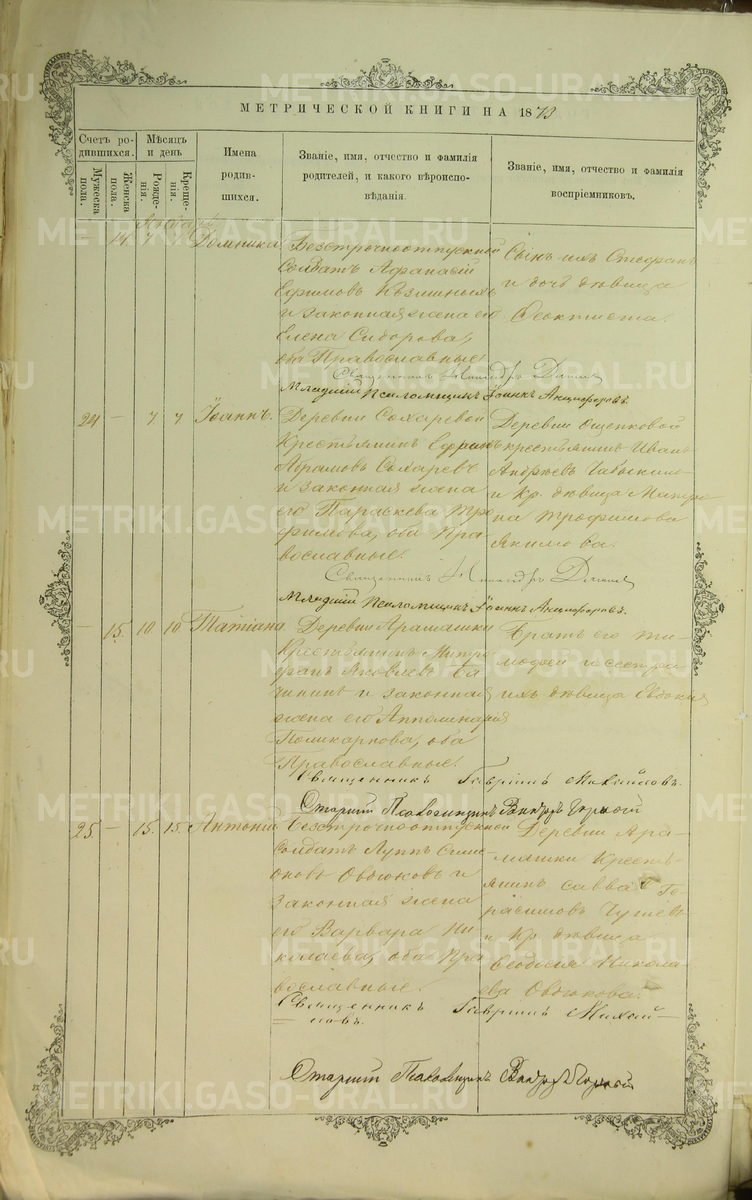 МЕТРИЧЕСКОЙ КНИГИ НА 1873
Счетъ ро-
дившихся.
Мѣсяцъ
и день
Мужеска
пола.
Женска
пола.
Рожде-
нія.
Креще-
нія.
Имена
родив-
шихся.
Званіе, имя, отчество и фамилія
родителей, и какого вѣроиспо-
вѣданія.
Званіе, имя, отчество и фамилія
воспріемниковъ.
14. 7 7 Домника
Безсрочноотпускной
Солдатъ Афанасій
Ефимовъ
и законная жена его
Елена Сидорова,
оба Православные.
Сынъ ихъ
и дочь дѣвица
Ѳеоктиста.
Священникъ
Младшій Псаломщикъ Іоаннъ Анциферовъ.
24 – 7 7 Іоаннъ.
Деревни Сохаревой
Крестьянинъ
Абрамовъ Сохаревъ
и законная жена
его Параскева Тро
фимова, оба Пра
вославные.
Деревни Ощепковой
крестьянинъ Иванъ
Андреевъ
и Кр. дѣвица Матро
на Трофимова
Якимова.
Священникъ
Младшій Псаломщикъ Іоаннъ Анциферовъ.
– 15. 10 10 Татіана
Деревни Арамашки
Крестьянинъ Митро
фанъ Яковлевъ
и законная
жена его Апполинарія
Поликарпова, оба
Православные.
Братъ его Ти-
моѳей и сестра
ихъ дѣвица Евдокія
Священникъ Гавріилъ Михайловъ.
Старшій Псаломщикъ
25. – 15. 15. Антоній
Безсрочноотпускной
Солдатъ Луппъ Симе
оновъ Овдюковъ и
законная жена
его Варвара Ни
колаева, оба Пра
вославные.
Деревни Ара-
машки Кресть-
янинъ Савва Ге-
расимовъ
и Кр. дѣвица
Ѳеодосія Никола
ева Овдюкова.
Священникъ Гавріилъ Михай-
ловъ.
Старшій Псаломщикъ
METRIKI.GASO-URAL.RU